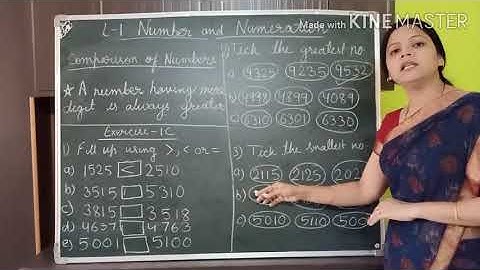 Made with KINEMASTER
L-1 Number and Numeration
Comparison of Numbers
★ A number having more
digit is always greater
Exercise-1C
1) Fill up using >, < or =
a) 1525 < 2510
b) 3515 5310
c) 3815 3518
d) 4637 4763
e) 5001 5100
Tick the greatest no.
a) 9325 9235 9532
b) 4998 4899 4089
c) 6310 6301 6330
3) Tick the smallest no.
a) 2115 2125
b)
c) 5010 5110